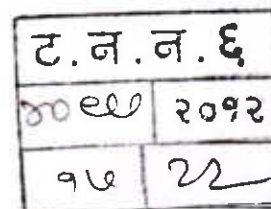 ट.न.न.६
२०१२
१७ २२